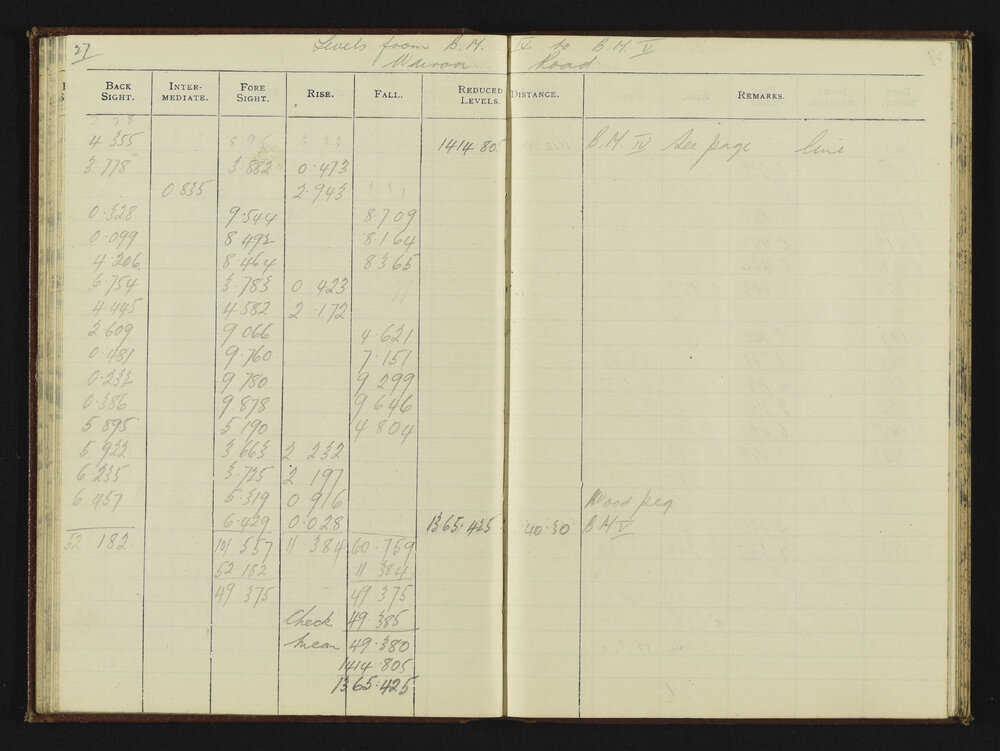 27
Levels from B.M. IV to B.M. V
Road
BACK SIGHT. INTER-MEDIATE. FORE SIGHT. RISE. FALL. REDUCED LEVELS. DISTANCE. REMARKS.
4 355 1414 805 B.M. IV See page line
3.778 3.882 0.473
0 835 2.943
0.328 9.544 8 709
0.099 8 492 8 164
4 206 8 464 8 365
6 754 3 783 0 423
4.445 4 582 2 172
2 609 9 066 4.621
0.481 9.760 7.151
0.232 9 780 9 299
0.386 9.878 9 646
5 895 5 190 4.804
5 922 3 663 2 232
6.235 3.725 2 197
6.457 5.319 0 916 Wood peg
6.429 0.028 1365.425 40.30 B.M V
52 182 101 557 11.384 60.759
52 182 11 384
49 375 49 375
Check 49.385
mean 49.380
1414 805
1365.425